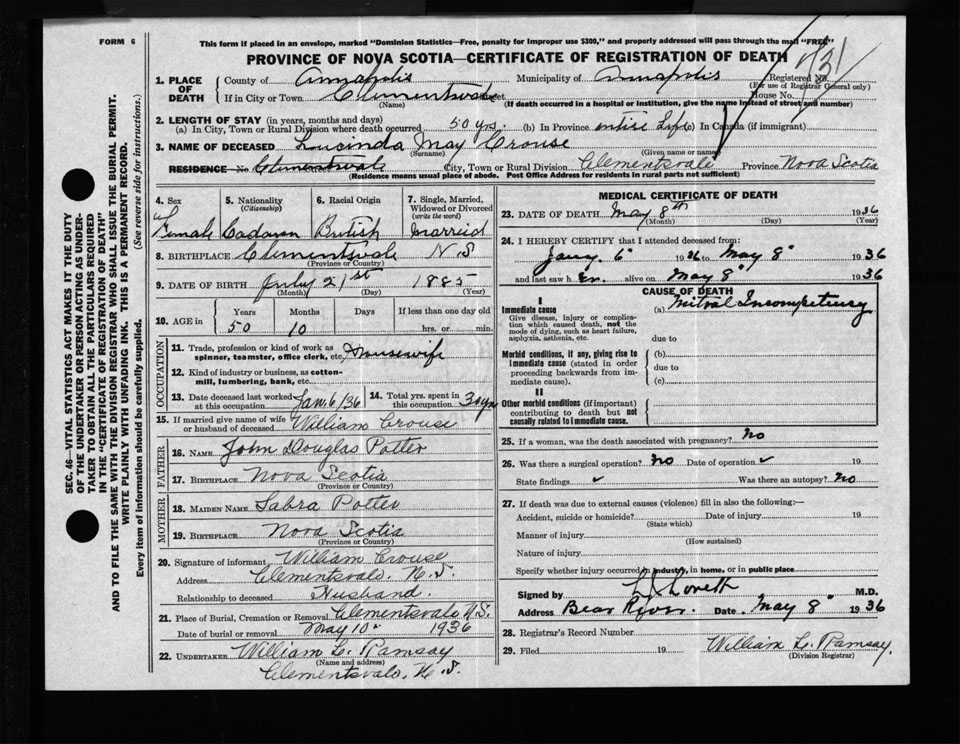 FORM 6
This form if placed in an envelope, marked "Dominion Statistics—Free, penalty for improper use $300," and properly addressed will pass through the mail "FREE"
PROVINCE OF NOVA SCOTIA—CERTIFICATE OF REGISTRATION OF DEATH
1. PLACE OF DEATH
County of Annapolis Municipality of Annapolis Registered No.
(For use of Registrar General only)
If in City or Town Clementsvale Street House No.
(Name) (If death occurred in a hospital or institution, give the name instead of street and number)
2. LENGTH OF STAY (in years, months and days)
(a) In City, Town or Rural Division where death occurred 50 yrs. (b) In Province entire Life (c) In Canada (if immigrant)
3. NAME OF DECEASED Lucinda May Crouse
(Surname) (Given name or names)
RESIDENCE No Clementsvale City, Town or Rural Division Clementsvale Province Nova Scotia
(Residence means usual place of abode. Post Office Address for residents in rural parts not sufficient)
4. Sex
Female
5. Nationality
(Citizenship)
Cadavan
6. Racial Origin
British
7. Single, Married, Widowed or Divorced
(write the word)
Marreid
8. BIRTHPLACE Clementsvale N S
(Province or Country)
9. DATE OF BIRTH July 21st 1885
(Month) (Day) (Year)
10. AGE in
Years Months Days If less than one day old
50 10 hrs. or min.
OCCUPATION
11. Trade, profession or kind of work as spinner, teamster, office clerk, etc. Housewife
12. Kind of industry or business, as cotton-mill, lumbering, bank, etc.
13. Date deceased last worked at this occupation Jan. 6/36
14. Total yrs. spent in this occupation 30 yrs
15. If married give name of wife or husband of deceased William Crouse
FATHER
16. NAME John Douglas Potter
17. BIRTHPLACE Nova Scotia
(Province or Country)
MOTHER
18. MAIDEN NAME Sabra Potter
19. BIRTHPLACE Nova Scotia
(Province or Country)
20. Signature of informant William Crouse
Address Clementsvale. N. S.
Relationship to deceased Husband.
21. Place of Burial, Cremation or Removal Clementsvale N.S.
Date of burial or removal May 10" 1936
22. UNDERTAKER William L. Ramsay
(Name and address)
Clementsvale, N. S.
MEDICAL CERTIFICATE OF DEATH
23. DATE OF DEATH May 8th 1936
(Month) (Day) (Year)
24. I HEREBY CERTIFY that I attended deceased from:
Jany. 6" 1936 to May 8" 1936
and last saw h er. alive on May 8" 1936
CAUSE OF DEATH
I
Immediate cause
Give disease, injury or complication which caused death, not the mode of dying, such as heart failure, asphyxia, asthenia, etc.
(a) Mitral Incompetency
due to
Morbid conditions, if any, giving rise to immediate cause (stated in order proceeding backwards from immediate cause).
(b)
due to
(c)
II
Other morbid conditions (if important) contributing to death but not causally related to immediate cause.
25. If a woman, was the death associated with pregnancy? No
26. Was there a surgical operation? No Date of operation ✓ 19
State findings ✓ Was there an autopsy? No
27. If death was due to external causes (violence) fill in also the following:—
Accident, suicide or homicide? Date of injury 19
(State which)
Manner of injury
(How sustained)
Nature of injury
Specify whether injury occurred in industry, in home, or in public place
Signed by Lovett M.D.
Address Bear River. Date May 8" 1936
28. Registrar's Record Number
29. Filed 19 William L. Ramsay.
(Division Registrar)
SEC. 46—VITAL STATISTICS ACT MAKES IT THE DUTY
OF THE UNDERTAKER OR PERSON ACTING AS UNDER-
TAKER TO OBTAIN ALL THE PARTICULARS REQUIRED
IN THE "CERTIFICATE OF REGISTRATION OF DEATH"
AND TO FILE THE SAME WITH THE DIVISION REGISTRAR WHO SHALL ISSUE THE BURIAL PERMIT.
WRITE PLAINLY WITH UNFADING INK. THIS IS A PERMANENT RECORD.
Every item of information should be carefully supplied. (See reverse side for instructions.)